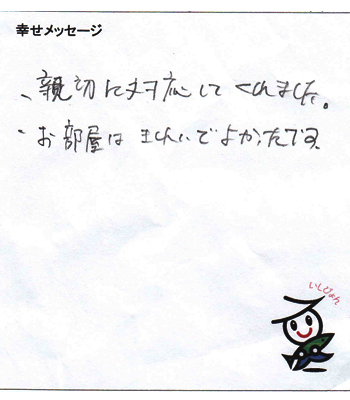 幸せメッセージ
、親切に対応してくれました。
・お部屋は きれいでよかったです。
いしぴょん